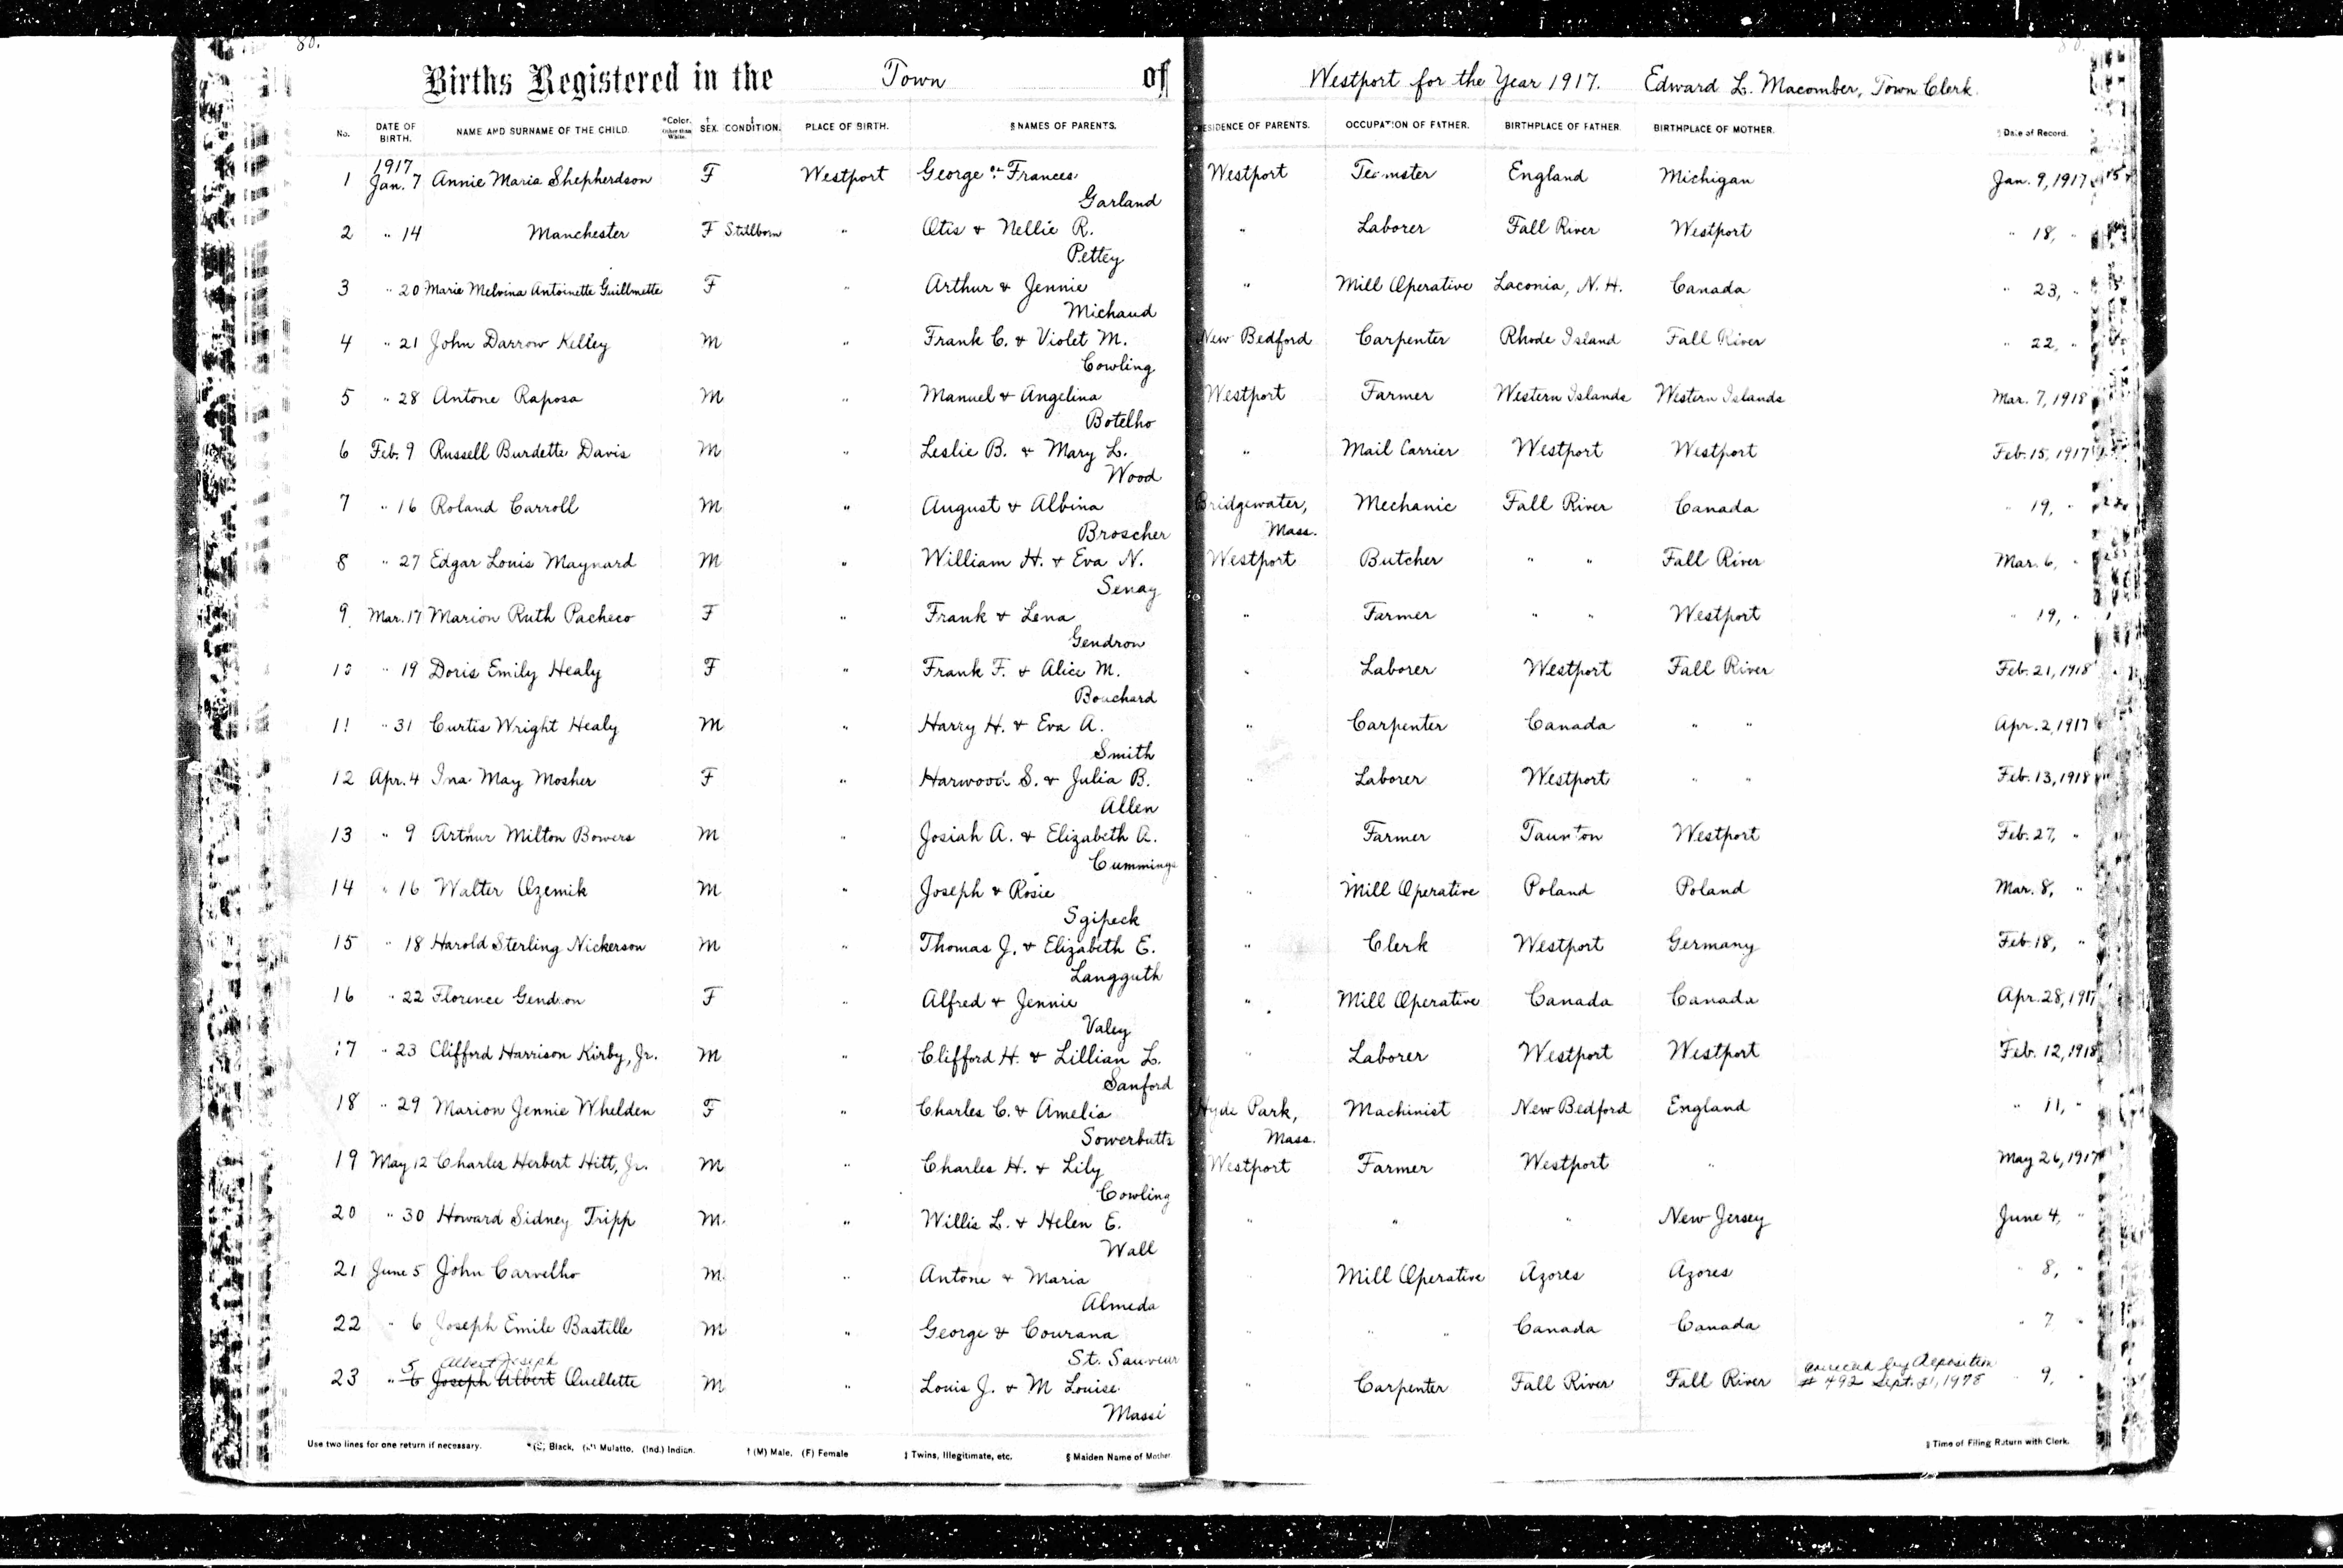 80.
Births Registered in the Town of Westport for the Year 1917. Edward L. Macomber, Town Clerk.
No. DATE OF BIRTH. NAME AND SURNAME OF THE CHILD. *Color. Other than White. † SEX. ‡ CONDITION. PLACE OF BIRTH. § NAMES OF PARENTS. RESIDENCE OF PARENTS. OCCUPATION OF FATHER. BIRTHPLACE OF FATHER. BIRTHPLACE OF MOTHER. Date of Record.
1917
1 Jan. 7 Annie Maria Shepherdson F Westport George & Frances Westport Teamster England Michigan Jan. 9, 1917
Garland
2 " 14 Manchester F Stillborn " Otis & Nellie R. " Laborer Fall River Westport " 18, "
Pettey
3 " 20 Marie Melvina Antoinette Guillmette F " Arthur & Jennie " Mill Operative Laconia, N. H. Canada " 23, "
Michaud
4 " 21 John Darrow Kelley M " Frank C. & Violet M. New Bedford Carpenter Rhode Island Fall River " 22, "
Cowling
5 " 28 Antone Raposa M " Manuel & Angelina Westport Farmer Western Islands Western Islands Mar. 7, 1918
Botelho
6 Feb. 9 Russell Burdette Davis M " Leslie B. & Mary L. " Mail Carrier Westport Westport Feb. 15, 1917
Wood
7 " 16 Roland Carroll M " August & Albina Bridgewater, Mechanic Fall River Canada " 19, "
Broscher Mass.
8 " 27 Edgar Louis Maynard M " William H. & Eva N. Westport Butcher " " Fall River Mar. 6, "
Senay
9 Mar. 17 Marion Ruth Pacheco F " Frank & Lena " Farmer " " Westport " 19, "
Gendron
10 " 19 Doris Emily Healy F " Frank F. & Alice M. " Laborer Westport Fall River Feb. 21, 1918
Bouchard
11 " 31 Curtis Wright Healy M " Harry H. & Eva A. " Carpenter Canada " " Apr. 2, 1917
Smith
12 Apr. 4 Ina May Mosher F " Harwood S. & Julia B. " Laborer Westport " " Feb. 13, 1918
Allen
13 " 9 Arthur Milton Bowers M " Josiah A. & Elizabeth A. " Farmer Taunton Westport Feb. 27, "
Cummings
14 " 16 Walter Ozemik M " Joseph & Rosie " Mill Operative Poland Poland Mar. 8, "
Sgipeck
15 " 18 Harold Sterling Nickerson M " Thomas J. & Elizabeth E. " Clerk Westport Germany Feb. 18, "
Langguth
16 " 22 Florence Gendron F " Alfred & Jennie " Mill Operative Canada Canada Apr. 28, 1917
Valey
17 " 23 Clifford Harrison Kirby, Jr. M " Clifford H. & Lillian L. " Laborer Westport Westport Feb. 12, 1918
Sanford
18 " 29 Marion Jennie Whelden F " Charles C. & Amelia Hyde Park, Machinist New Bedford England " 11, "
Sowerbutts Mass.
19 May 12 Charles Herbert Hitt, Jr. M " Charles H. & Lily Westport Farmer Westport " May 26, 1917
Cowling
20 " 30 Howard Sidney Tripp M " Willis L. & Helen E. " " " New Jersey June 4, "
Wall
21 June 5 John Carvelho M " Antone & Maria " Mill Operative Azores Azores " 8, "
Almeda
22 " 6 Joseph Emile Bastille M " George & Courana " " " Canada Canada " 7 "
St. Sauveur
5 Albert Joseph corrected by deposition
23 " 6 Joseph Albert Ouellette M " Louis J. & M Louise " Carpenter Fall River Fall River # 492 Sept. 21, 1978 " 9, "
Massé
Use two lines for one return if necessary. *(B) Black, (M) Mulatto, (Ind.) Indian. † (M) Male, (F) Female ‡ Twins, Illegitimate, etc. § Maiden Name of Mother ‖ Time of Filing Return with Clerk.